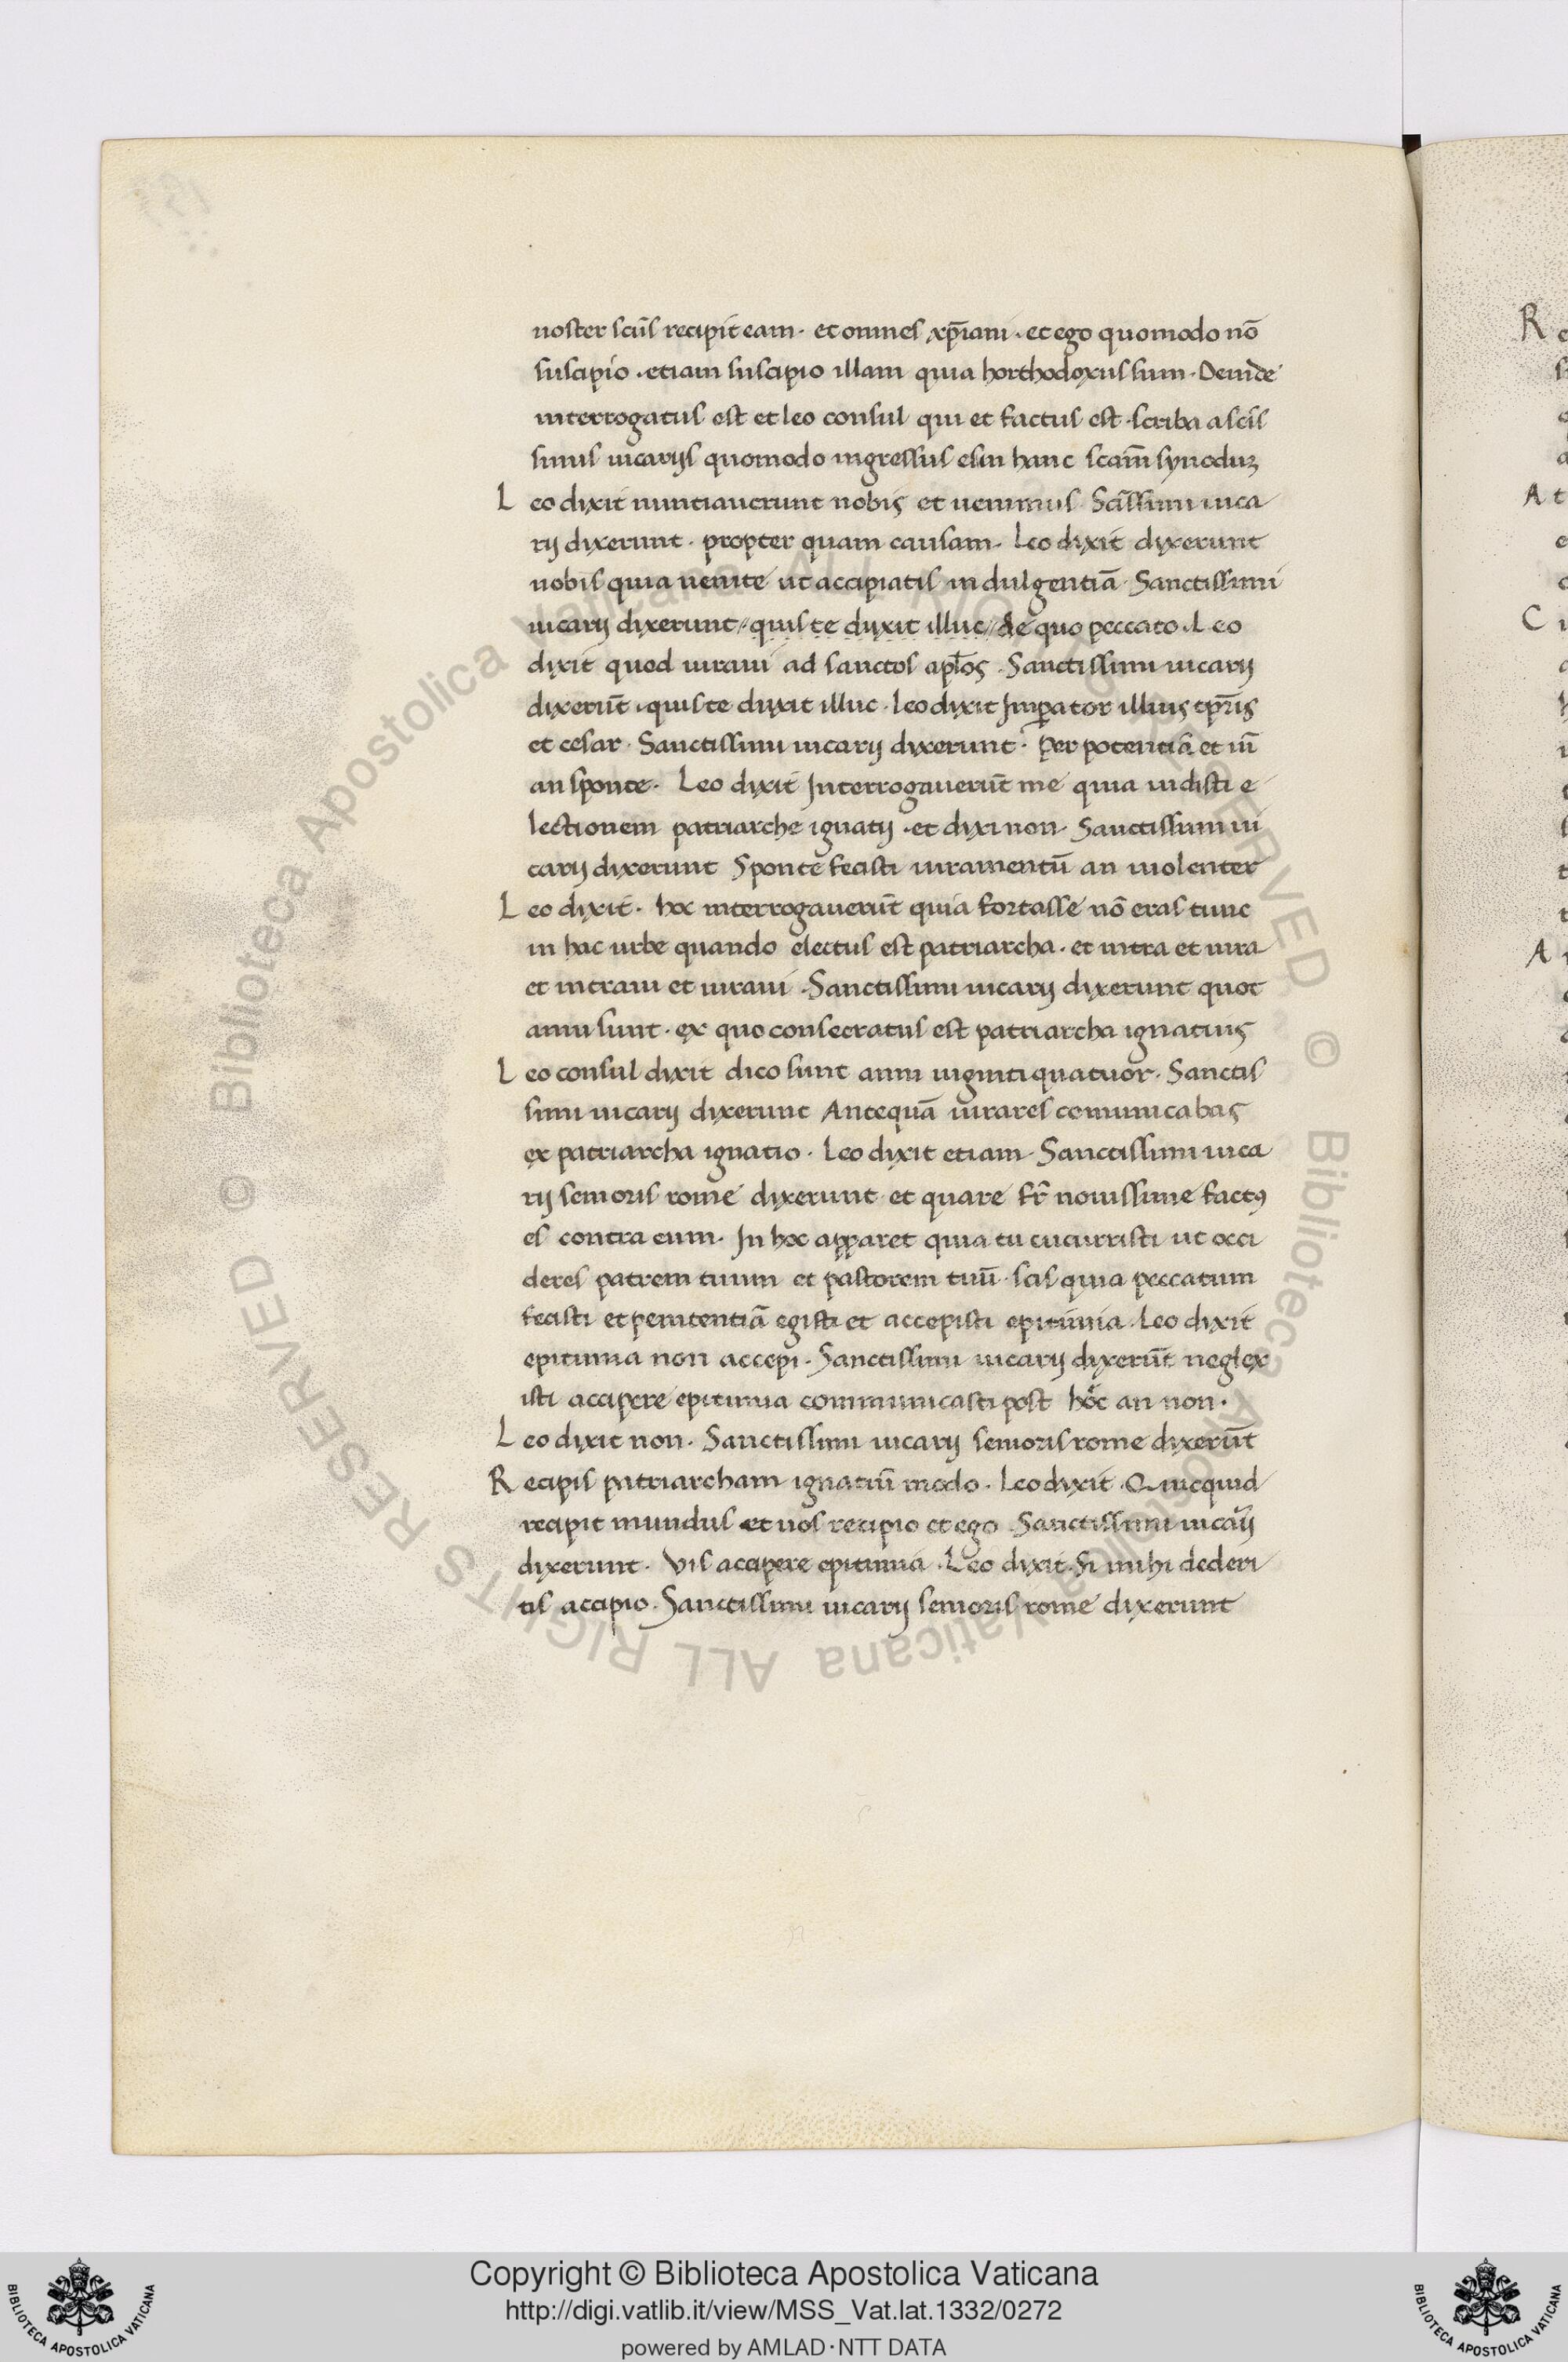 noster scūs recipit eam · et omnes xp̄iani · et ego quomodo nō
suscipio · etiam suscipio illam quia horthodoxus sum · Deinde
interrogatus est et leo consul qui et factus est · scriba a scīs
simis uicarijs quomodo ingressus es in hanc scām synoduʒ
Leo dixit nuntiauerunt nobis et uenimus Scīssimi uica
rij dixerunt · propter quam causam · Leo dixit dixerunt
nobis quia uenite ut accipiatis indulgentiā · Sanctissimi
uicarij dixerunt // quis te duxit illuc // de quo peccato · Leo
dixit quod iuraui ad sanctos apl̄os · Sanctissimi uicarij
dixerūt · quis te duxit illuc · Leo dixit Imꝑator illius tp̄ris
et cesar · Sanctissimi uicarij dixerunt · Per potentiā et uī
an sponte · Leo dixit Interrogauerūt me quia uidisti e
lectionem patriarche ignatij · et dixi non · Sanctissimi ui
carij dixerunt Sponte fecisti iuramentū an uiolenter
Leo dixit · hoc interrogauerūt quia fortasse nō eras tunc
in hac urbe quando electus est patriarcha · et intra et iura
et intraui et iuraui · Sanctissimi uicarij dixerunt quot
anni sunt · ex quo consecratus est patriarcha ignatius
Leo consul dixit dico sunt anni uigintiquatuor · Sanctis
simi uicarij dixerunt Antequā iurares comunicabas
ex patriarcha ignatio · Leo dixit etiam · Sanctissimi uica
rij senioris rome dixerunt et quare fr̄ nouissime factꝰ
es contra eum · In hoc apparet quia tu cucurristi ut occi
deres patrem tuum et pastorem tuū · scis quia peccatum
fecisti et penitentiā egisti et accepisti epitimia · Leo dixit
epitimia non accepi · Sanctissimi uicarij dixerūt neglex
isti accipere epitimia communicasti post hoc an non ·
Leo dixit non · Sanctissimi uicarij senioris rome dixerūt
Recipis patriarcham ignatiū modo · Leo dixit · Quicquid
recipit mundus et uos recipio et ego Sanctissimi uicarij
dixerunt · Vis accipere epitimia · Leo dixit · si mihi dederi
tis accipio · Sanctissimi uicarij senioris rome dixerunt
© Biblioteca Apostolica Vaticana ALL RIGHTS RESERVED © Biblioteca Apostolica Vaticana ALL RIGHTS RESERVED
R
A t
C
A
Copyright © Biblioteca Apostolica Vaticana
http://digi.vatlib.it/view/MSS_Vat.lat.1332/0272
powered by AMLAD·NTT DATA
BIBLIOTECA APOSTOLICA VATICANA
BIBLIOTECA APOSTOLICA VATICANA